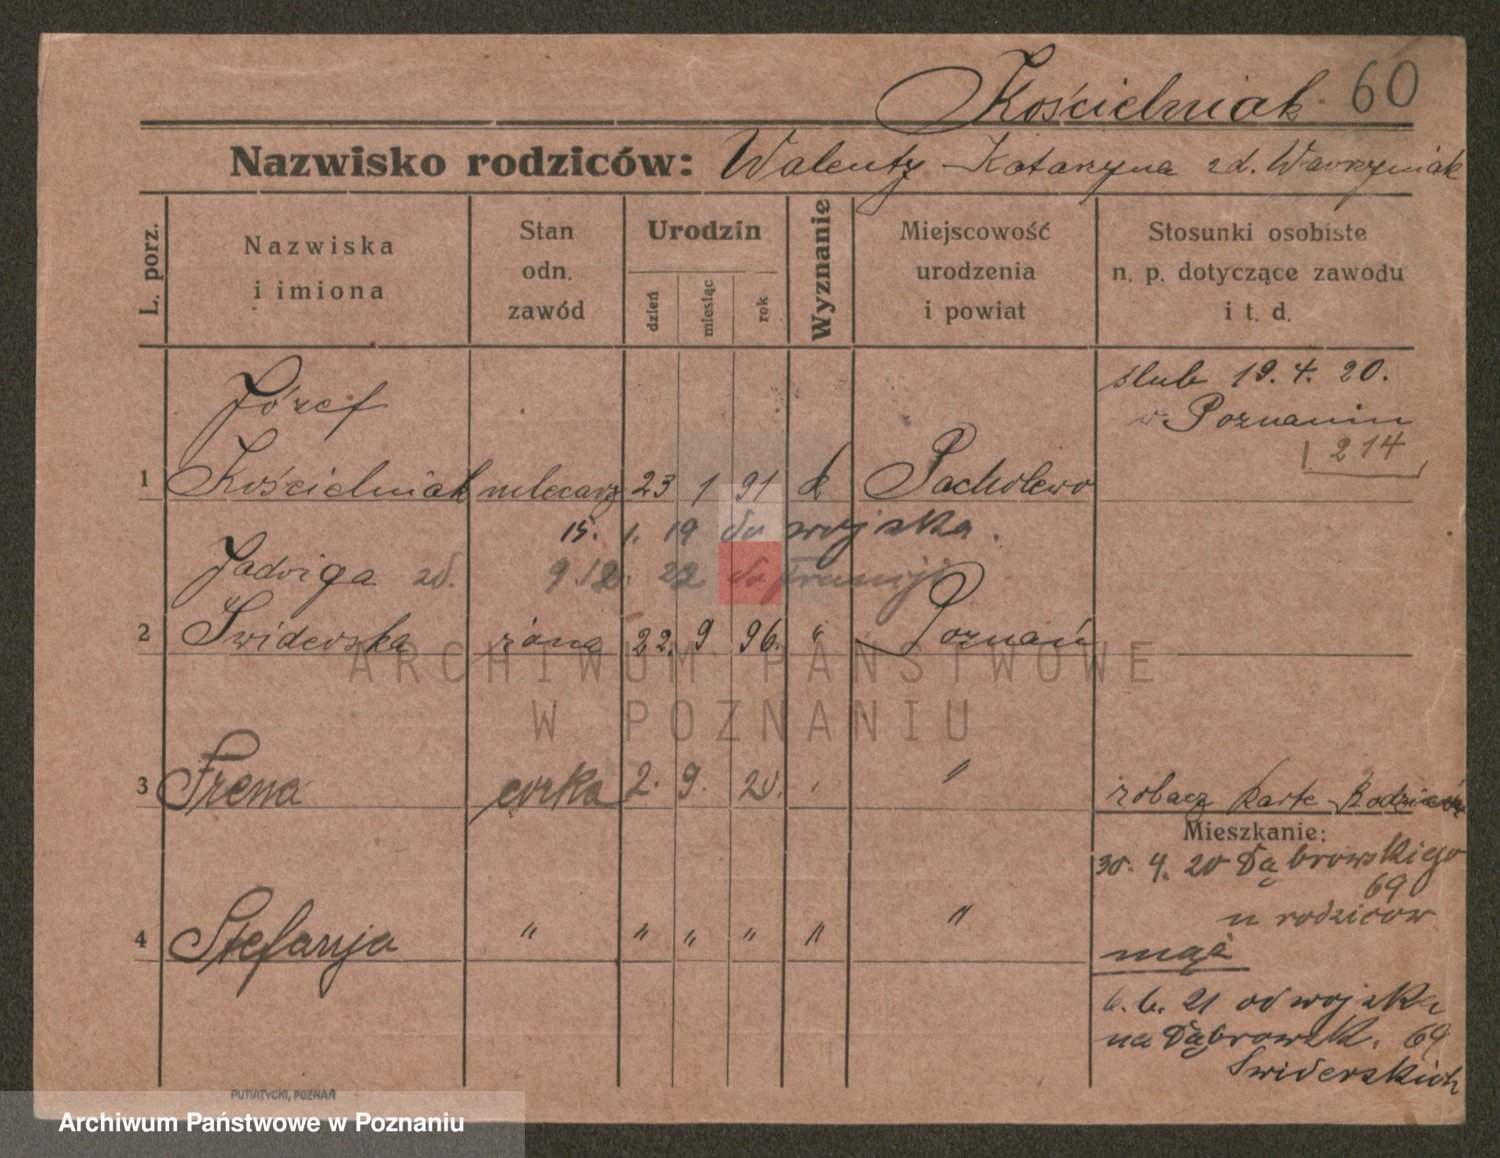 Kościelniak 60
Nazwisko rodziców: Walenty Katarzyna zd. Wawrzyniak
L. porz.
Nazwiska i imiona
Stan odn. zawód
Urodzin
dzień miesiąc rok
Wyznanie
Miejscowość urodzenia i powiat
Stosunki osobiste n. p. dotyczące zawodu i t. d.
Józef ślub 19. 4. 20.
w Poznaniu
214
1 Kościelniak mleczarz 23 1 91 k Pacholewo
15. 1. 19 do wojska.
Jadwiga zd. 9. 12. 22 do Francji
2 Swiderska żona 22. 9 96. " Poznań
ARCHIWUM PAŃSTWOWE
W POZNANIU
3 Irena córka 2. 9. 20. " " zobacz Kartę Rodziców
Mieszkanie:
30. 4. 20 Dąbrowskiego
69
u rodziców
4 Stefanja " " " " " "
mąż
6. 6. 21 od wojska
na Dąbrowsk. 69
Swiderskich
PUTIATYCKI, POZNAŃ
Archiwum Państwowe w Poznaniu